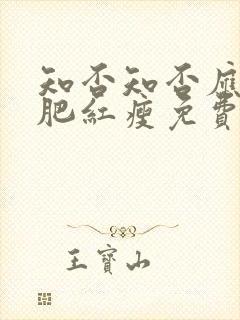 知否知否應
肥紅瘦免費
王寶山